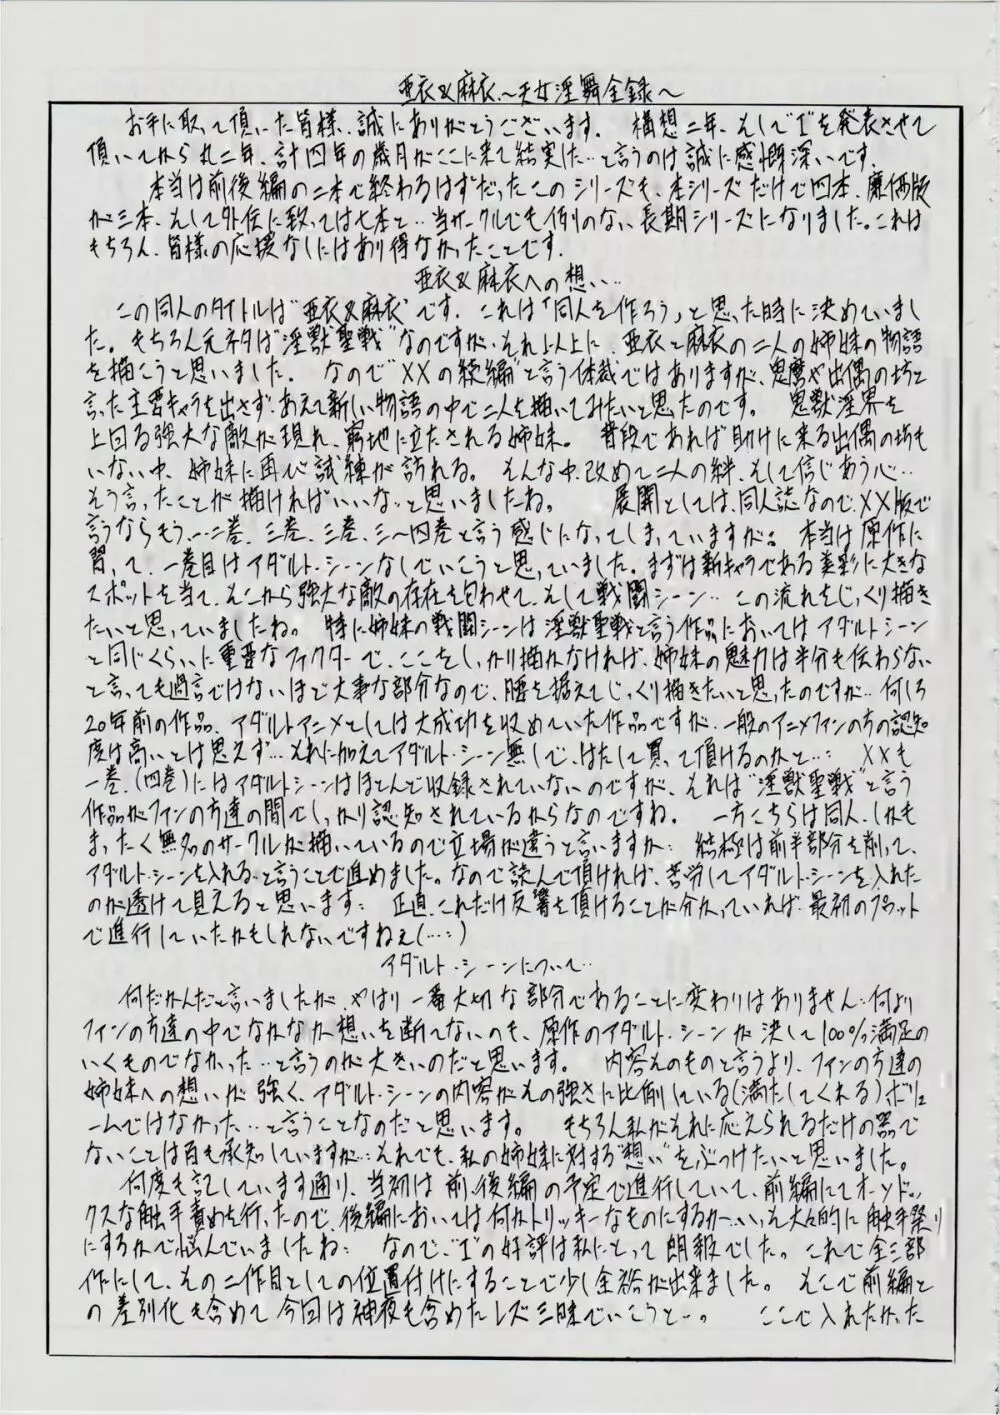 亜衣&麻衣〜天女淫舞全録〜
お手に取って頂いた皆様、誠にありがとうございます。 構想二年、そして"I"を発表させて
頂いてから丸二年、計四年の歳月がここに来て結実した…と言うのは誠に感慨深いです。
本当は前後編の二本で終わるはずだったこのシリーズも、本シリーズだけで四本、廉価版
が三本、そして外伝に致っては七本と…当サークルでも例のない長期シリーズになりました。これは
もちろん、皆様の応援なしにはあり得なかったことです。
亜衣&麻衣への想い…
この同人のタイトルは"亜衣&麻衣"です。これは「同人を作ろう」と思った時に決めていまし
た。もちろん元ネタは"淫獣聖戦"なのですが、それ以上に、亜衣と麻衣の二人の姉妹の物語
を描こうと思いました。 なので"XXの続編"と言う体裁ではありますが、鬼麿や出偶の坊と
言った主要キャラを出さず、あえて新しい物語の中で二人を描いてみたいと思ったのです。 鬼獣淫界を
上回る強大な敵が現れ、窮地に立たされる姉妹。 普段であれば助けに来る出偶の坊も
いない中、姉妹に再び試練が訪れる。 そんな中、改めて二人の絆、そして信じあう心…
そう言ったことが描ければいいな…と思いましたね。 展開としては、同人誌なので、XX版で
言うならもう…二巻、三巻、三巻、三〜四巻と言う感じになってしまっていますが。 本当は原作に
習って、一巻目はアダルト・シーンなしでいこうと思っていました。まずは新キャラである美彩に大きな
スポットを当て、そこから強大な敵の存在を匂わせて、そして戦闘シーン… この流れをじっくり描き
たいと思っていましたね。 特に姉妹の戦闘シーンは淫獣聖戦と言う作品においてはアダルト・シーン
と同じくらいに重要なファクターで、ここをしっかり描かなければ、姉妹の魅力は半分も伝わらない
と言っても過言ではないほど大事な部分なので、腰を据えてじっくり描きたいと思ったのですが…何しろ
20年前の作品、アダルトアニメとしては大成功を収めていた作品ですが、一般のアニメファンの方の認知
度は高いとは思えず…それに加えてアダルト・シーン無しで、はたして買って頂けるのかと…: XXも
一巻、(四巻)にはアダルトシーンはほとんど収録されていないのですが、それは"淫獣聖戦"と言う
作品がファンの方達の間でしっかり認知されているからなのですね。 一方こちらは同人、しかも
まったく無名のサークルが描いているので立場が違うと言いますか… 結極は前半部分を削って、
アダルト・シーンを入れる…と言うことで進めました。なので読んで頂ければ、苦労してアダルト・シーンを入れた
のが透けて見えると思います: 正直、これだけ反響を頂けることが分かっていれば、最初のプロット
で進行していたかもしれないですねぇ(…:)
アダルト・シーンについて…
何だかんだと言いましたが、やはり一番大切な部分であることに変わりはありません:何より
ファンの方達の中でなかなか想いを断てないのも、原作のアダルト・シーンが決して100%満足の
いくものでなかった…と言うのが大きいのだと思います。 内容そのものと言うより、ファンの方達の
姉妹への想いが強く、アダルト・シーンの内容がその強さに比例している(満たしてくれる)ボリュ
ームではなかった…と言うことなのだと思います。 もちろん私がそれに応えられるだけの器で
ないことは百も承知していますが…:それでも、私の姉妹に対する"想い"をぶつけたいと思いました。
何度も記しています通り、当初は前、後編の予定で進行していて、前編にてオーソドッ
クスな触手責めを行ったので、後編においては何かトリッキーなものにするか…いっそ大々的に触手祭り
にするかで悩んでいましたね: なので、"I"の好評は私にとって朗報でした。これで全三部
作にして、その二作目としての位置付けにすることで少し余裕が出来ました。 そこで前編と
の差別化も含めて今回は神夜も含めたレズ三昧でいこうと…。 ここで入れたかった